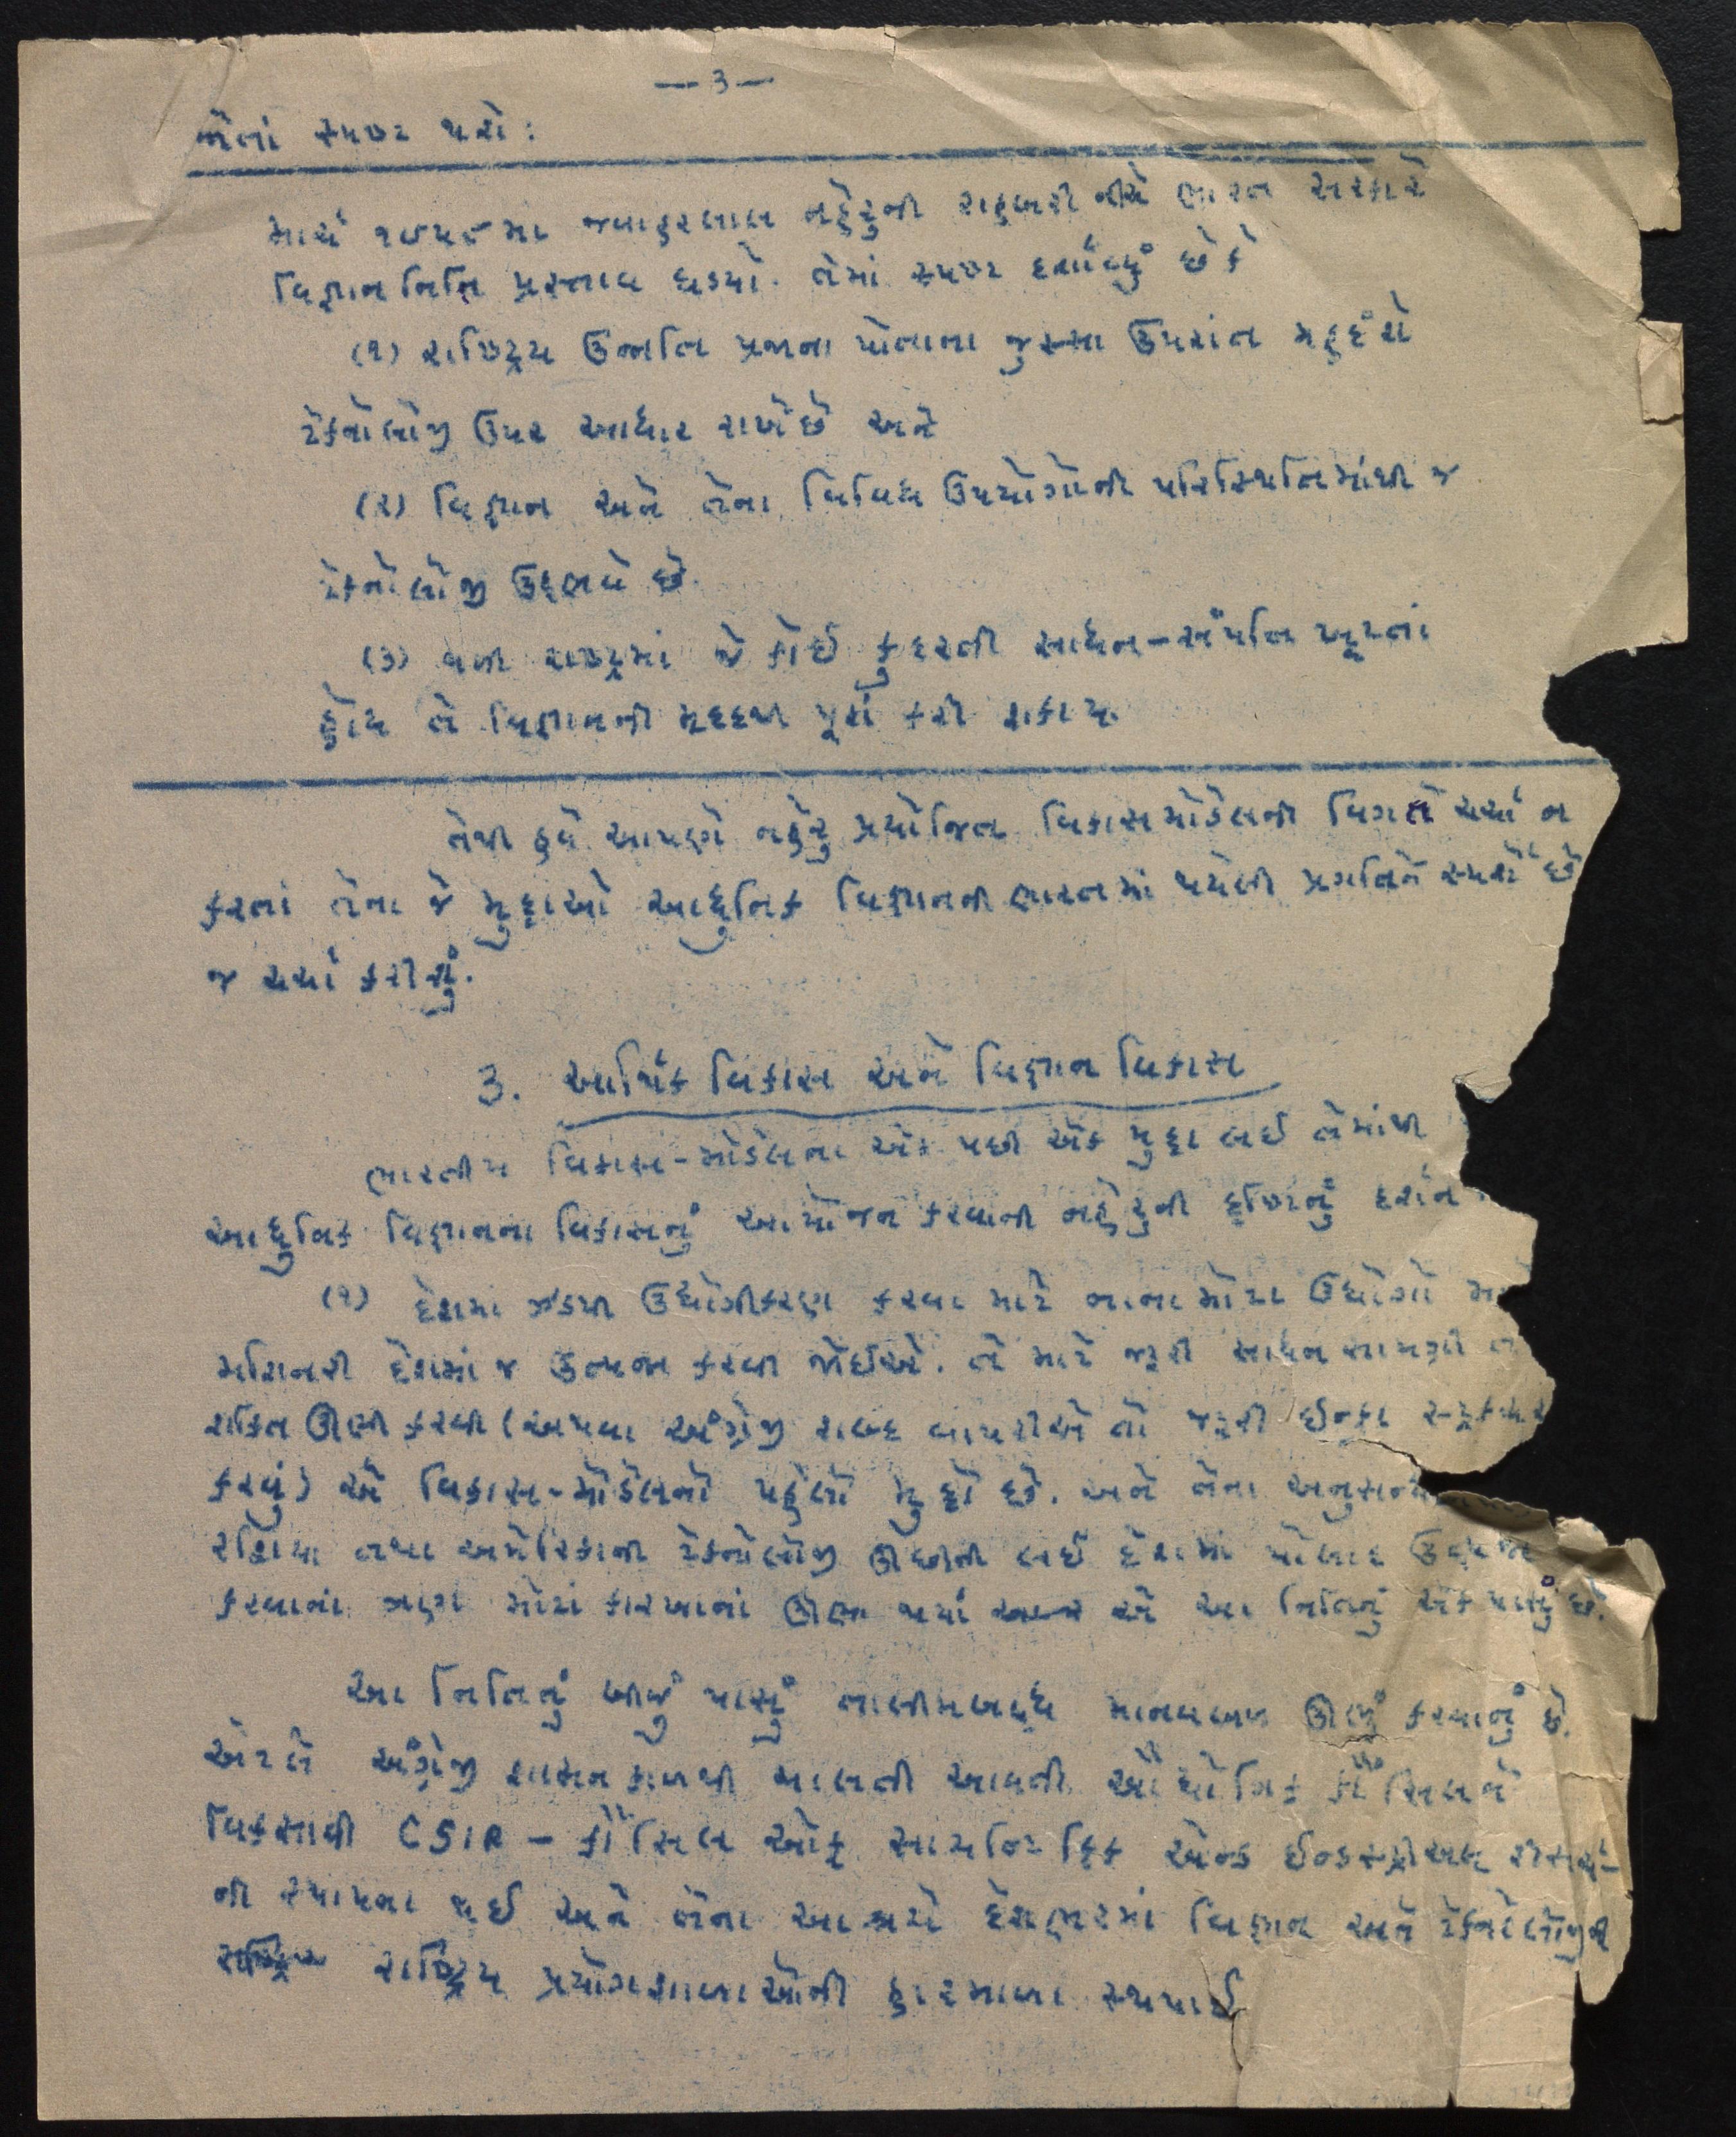 —3—
જેનાં સ્પષ્ટ થશે:
માર્ચ ૧૯૫૮માં જવાહરલાલ નહેરુની રાહબરી નીચે ભારત સરકારે
વિજ્ઞાનનિતિ પ્રસ્તાવ ઘડ્યો. તેમાં સ્પષ્ટ દર્શાવ્યું છે કે
(૧) રાષ્ટ્રિય ઉન્નતિ પ્રજાના પોતાના જુસ્સા ઉપરાંત મહદંશે
ટેક્નોલોજી ઉપર આધાર રાખે છે અને
(૨) વિજ્ઞાન અને તેના વિવિધ ઉપયોગોની પરિસ્થિતિમાંથી જ
ટેક્નોલોજી ઉદ્ભવે છે.
(૩) વળી રાષ્ટ્રમાં જે કોઈ કુદરતી સાધન-સંપત્તિ ખૂટતાં
હોય તે વિજ્ઞાનની મદદથી પૂરાં કરી શકાય.
તેથી હવે આપણે નહેરુ પ્રયોજિત વિકાસમોડેલની વિગતે ચર્ચા ન
કરતાં તેના જે મુદ્દાઓ આધુનિક વિજ્ઞાનની ભારતમાં થયેલી પ્રગતિને સ્પર્શે છે
જ ચર્ચા કરીશું.
3. આર્થિક વિકાસ અને વિજ્ઞાન વિકાસ
ભારતીય વિકાસ-મોડેલના એક પછી એક મુદ્દા લઈ તેમાંથી
આધુનિક વિજ્ઞાનના વિકાસનું આયોજન કરવાની નહેરુની દૃષ્ટિનું દર્શન
(૧) દેશમાં ઝડપી ઉદ્યોગીકરણ કરવા માટે નાનામોટા ઉદ્યોગો
મશિનરી દેશમાં જ ઉત્પન્ન કરવી જોઈએ. તે માટે જરૂરી સાધન સામગ્રી
શક્તિ ઊભી કરવી (અથવા અંગ્રેજી શબ્દ વાપરીએ તો જરૂરી ઈન્ફ્રા સ્ટ્રક્ચર
કરવું) એ વિકાસ-મોડેલનો પહેલો મુદ્દો છે. અને તેના
રશિયા તથા અમેરિકાની ટેક્નોલોજી ઊછીની લઈ દેશમાં પોલાદ ઉત્પન્ન
કરવાનાં ત્રણ મોટાં કારખાનાં ઊભા થયાં એ આ નિતિનું એક પાસું છે.
આ નિતિનું બીજું પાસું તાલીમબદ્ધ માનવબળ ઊભું કરવાનું છે.
એટલે અંગ્રેજી શાસન કાળથી ચાલતી આવતી ઔદ્યોગિક કૌંસિલને
વિકસાવી CSIR - કૌંસિલ ઓફ સાયન્ટિફિક એન્ડ ઈન્ડસ્ટ્રીઅલ રીસર્ચ-
ની સ્થાપના થઈ અને તેના આશ્રયે દેશભરમાં વિજ્ઞાન અને ટેક્નોલોજીની
રાષ્ટ્રિય પ્રયોગશાળાઓની હારમાળા સ્થપાઈ